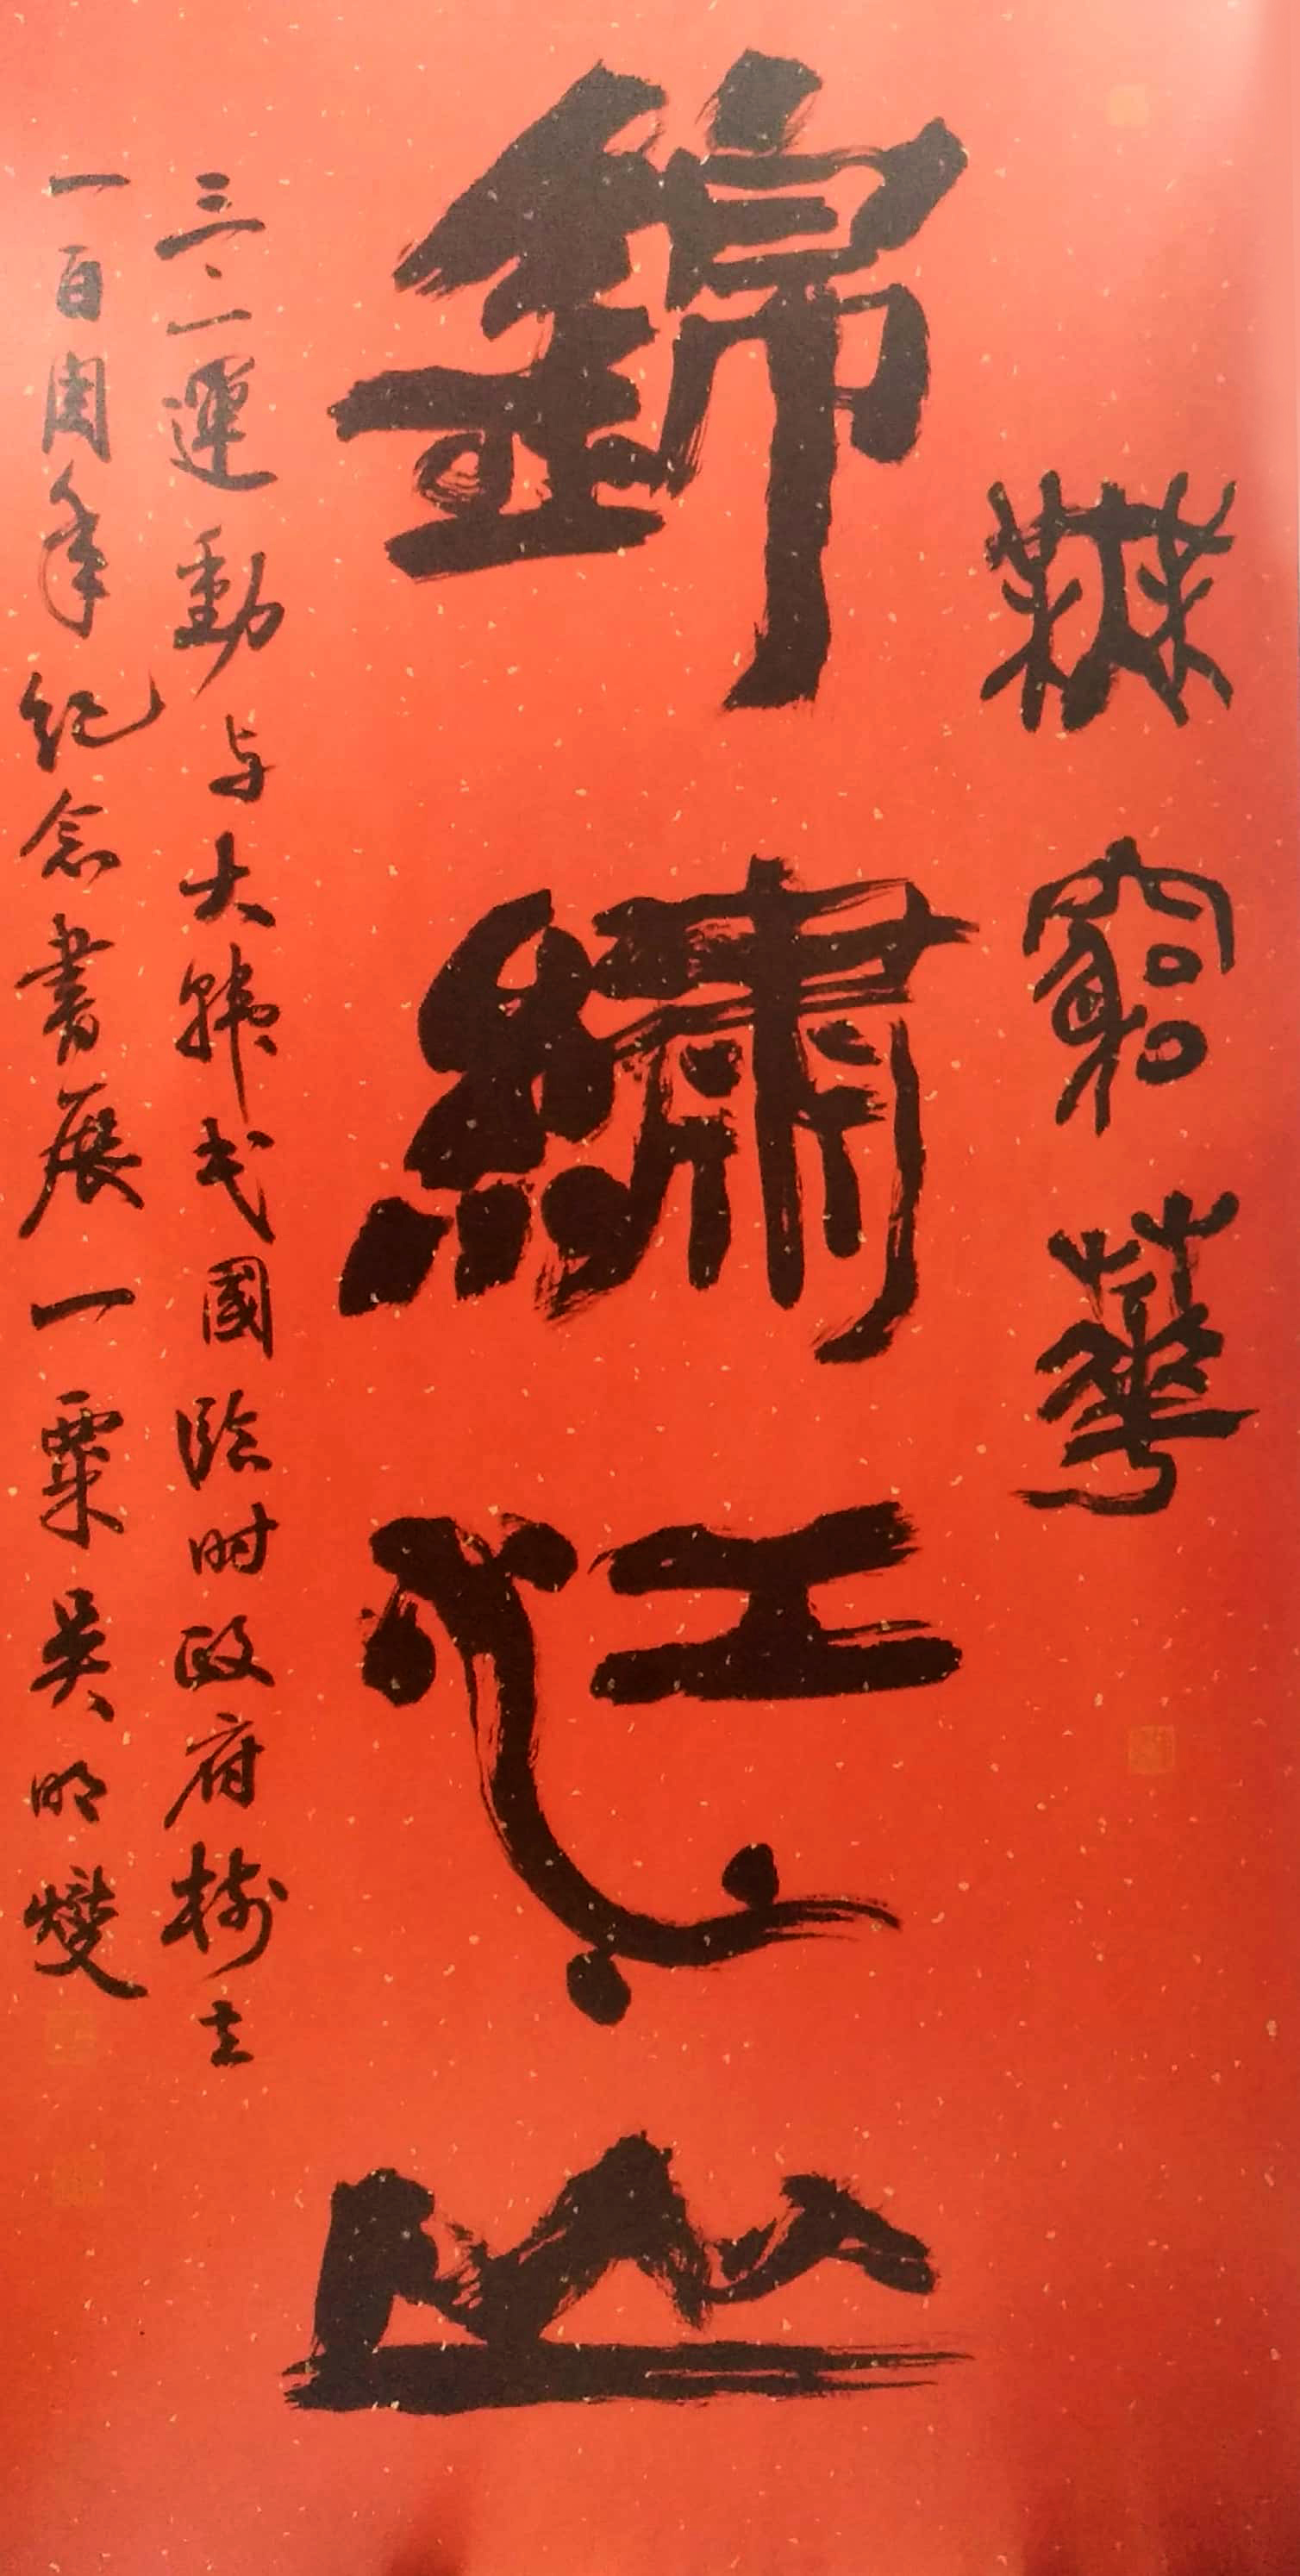 無窮華
錦繡江山
三一運動与大韓民國臨时政府樹立
一百周年紀念書展一粟吴明燮